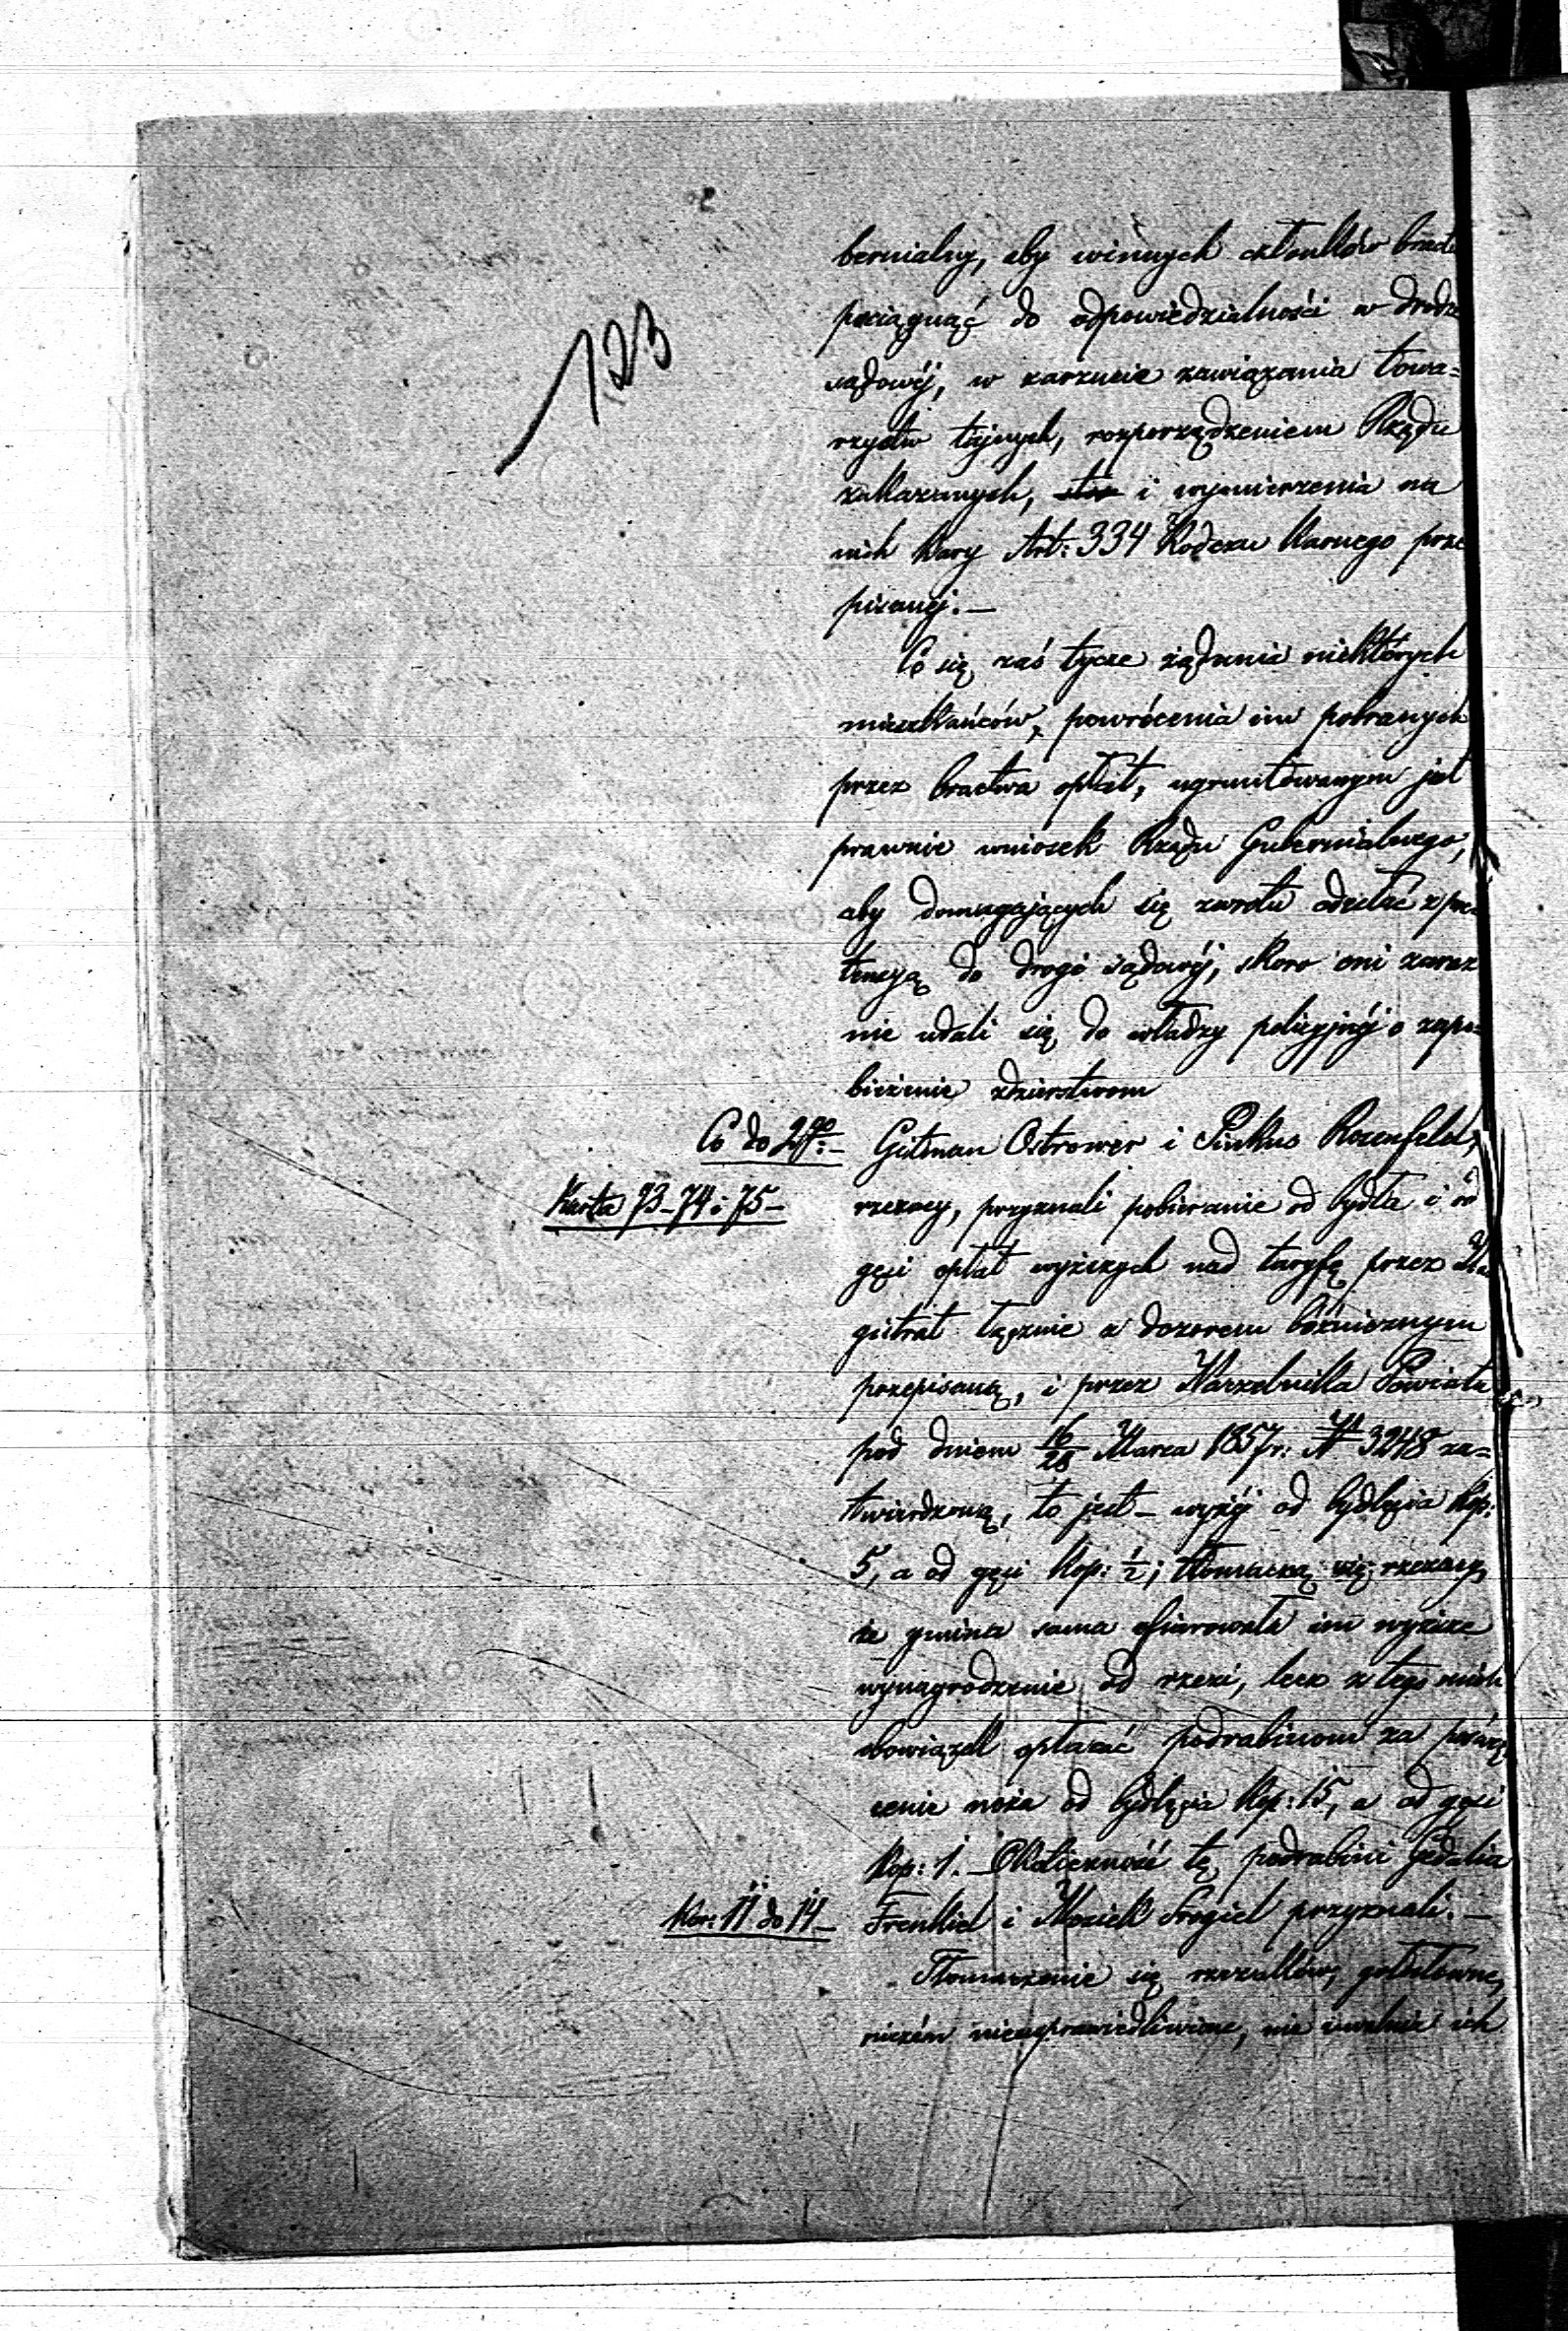 123
bernialny, aby winnych członków bract
pociągnąć do odpowiedzialności w drodze
sądowéj, w zarzucie zawiązania towa=
rzystw tajnych, rozporządzeniem Rządu
zakazanych, i wymierzenia na
nich kary Art: 334 Kodexu Karnego prze
pisanéj. —
Co się zaś tycze żądania niektórych
mieszkańców, powrócenia im pobranych
przez bractwa opłat, ugruntowanym jest
prawnie wniosek Rządu Gubernialnego,
aby domagających się zwrotu odesłać z pre
tensyą do drogi sądowéj, skoro oni zaraz
nie udali się do władzy policyjnéj o zapo=
bieżenie zdzierstwom
Co do 2go: — Gutman Ostrower i Pinkus Rozenfeld,
Karta 73 – 74 i 75 — rzezacy, przyznali pobieranie od bydła i od
gęsi opłat wyższych nad taryfę przez Ma
gistrat łącznie z dozorem bóżniczym
przepisaną, i przez Naczelnika Powiatu
pod dniem 16/28 Marca 1857 r: N 3248 za=
twierdzoną, to jest – wyżéj od bydlęcia Kop:
5, a od gęsi Kop: ½; tłomaczą się rzezacy,
że gmina sama ofiarowała im wyższe
wynagrodzenie od rzezi, lecz z tego mieli
obowiązek opłacać podrabinom za
cenie noża od bydlęcia Kop: 15, a od gęsi
Kop: 1. — Okoliczność tę podrabini Gedalia
Kar: 11 do 14 — Frenkiel i Mosiek Srogiel przyznali. —
Tłomaczenie się rzezaków, gołosłowne,
niczém nieusprawiedliwione, nie uwalnia ich